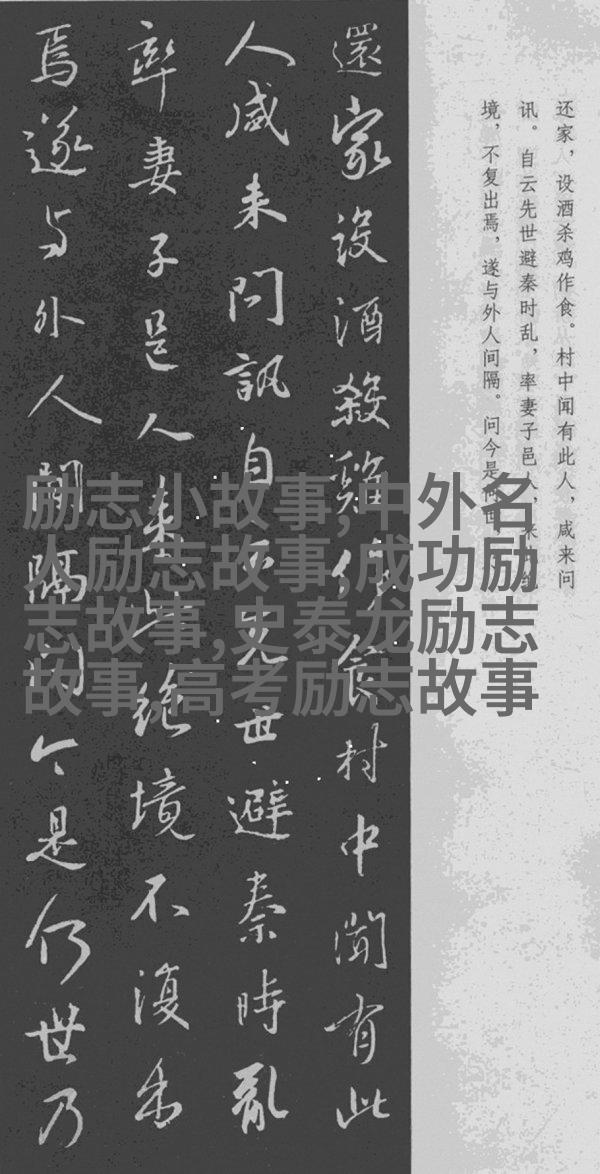 还家，设酒杀鸡作食。村中闻有此人，咸来问
讯。自云先世避秦时乱，率妻子邑人，来此绝
境，不复出焉，遂与外人间隔。问今是何世，
還家設酒殺雞作食村中聞有此
人咸来問訊自云先世避秦時亂
率妻子邑人来此絶境不復出
焉遂与外人間隔問今是何世乃
励志小故事,中外名
人励志故事,成功励
志故事,史泰龙励志
故事,高考励志故事